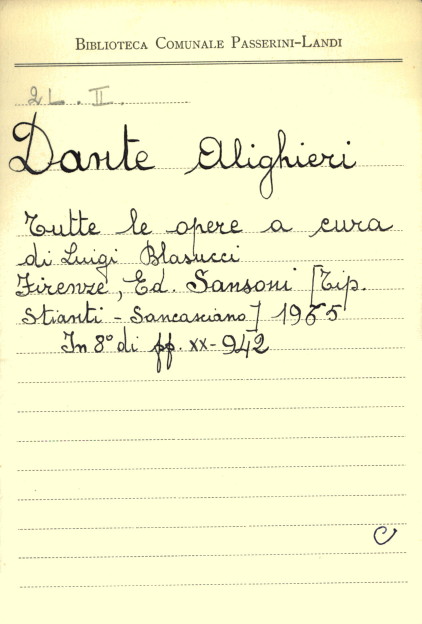 BIBLIOTECA COMUNALE PASSERINI-LANDI
2L. II.
Dante Alighieri
Tutte le opere a cura
di Luigi Blasucci
Firenze, Ed. Sansoni [Tip.
Stianti - Sancasciano] 1965
In 8° di pp. XX-942
C